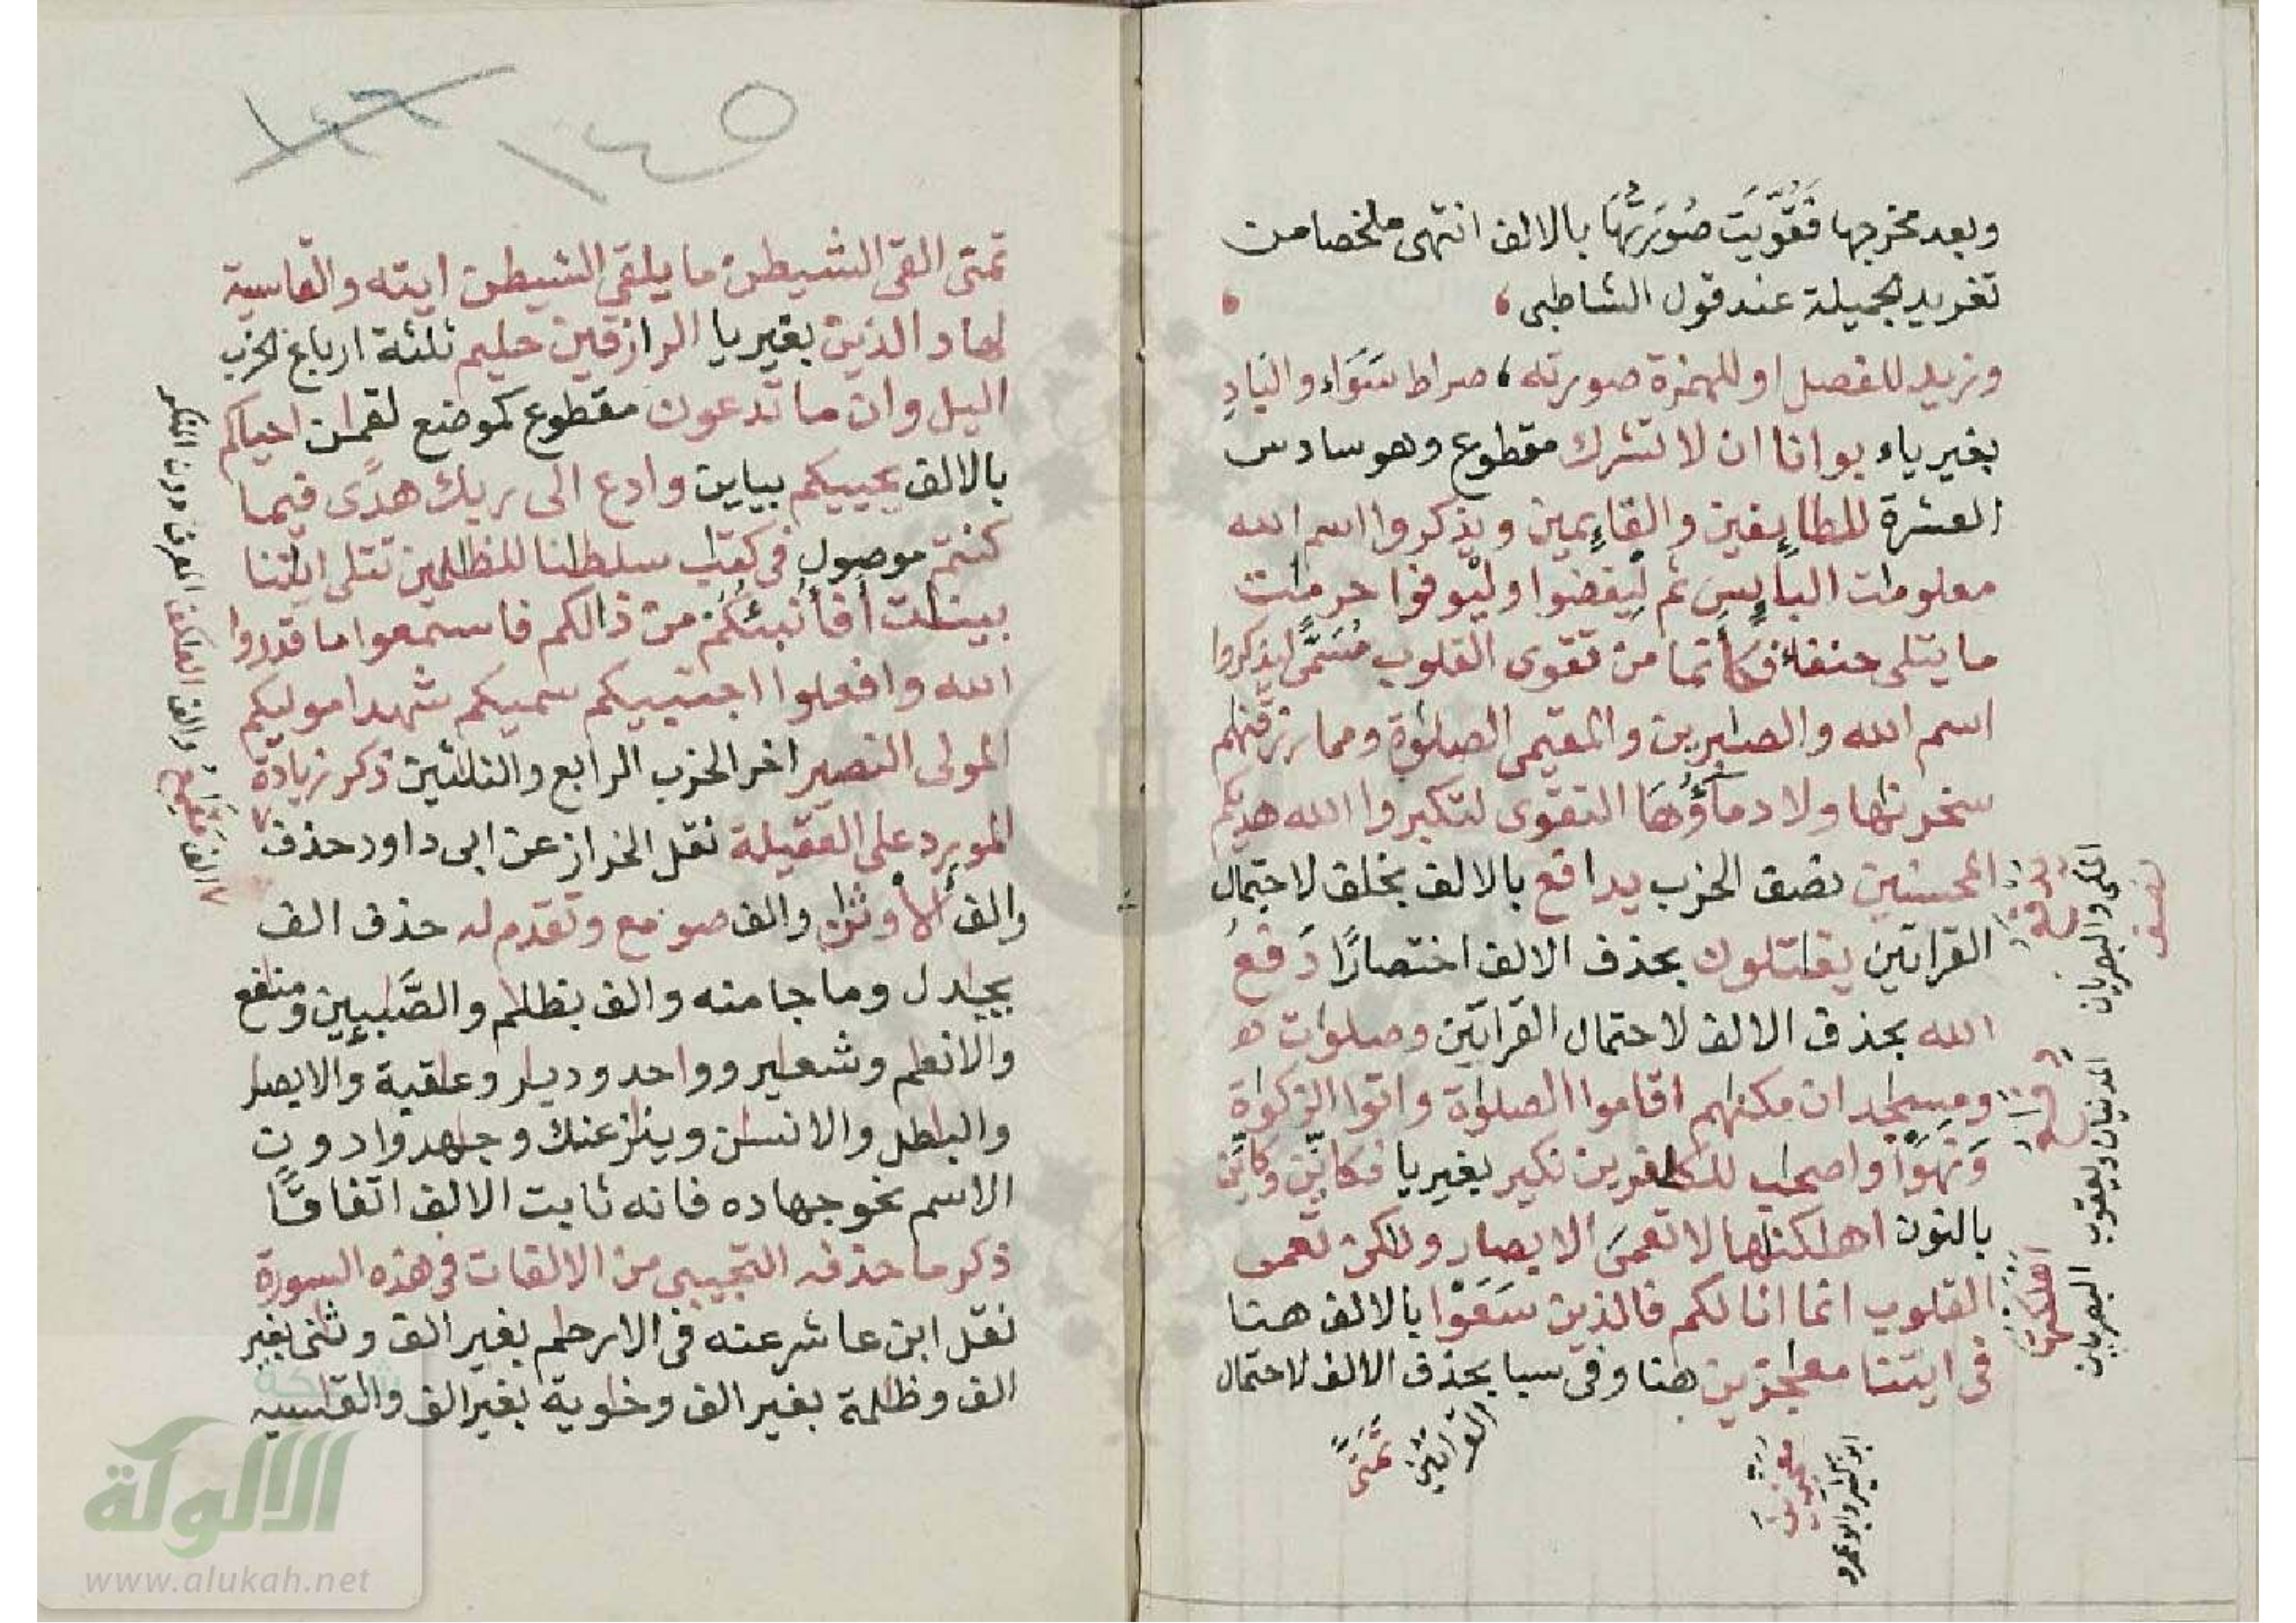 وبعد مخرجها فَقُوِّيَت صُورَتُهَا بالالف انتهى ملخصا من
تغريد الجميلة عند قول الشاطبى،
وزيد للفصل او للهمزة صورته، صراط سَوَاء والبَادِ
بغير ياء بوانا ان لا تشرك مقطوع وهو سادس
العشرة للطايٕفين والقايٕمين ويذكروا اسم الله
معلومٰت البايٕس ثم لْيقضوا ولْيوفوا حرمٰت
ما يتلى حنفاء فكأنما من تقوى القلوب مُسَمًّى ليذكروا
اسم الله والصٰبرين والمقيمى الصلوٰة ومما رزقنٰهم
سخرنٰها ولا دمآؤُهَا التقوى لتكبروا الله هديكم
المحسنين نصف الحزب يدافع بالالف بخلف لاحتمال
القراتين يقٰتلون بحذف الالف اختصارًا دَفْعُ
الله بحذف الالف لاحتمال القراتين وصلوٰت
ومسٰجد ان مكنٰهم اقاموا الصلوٰة واتوا الزكوٰة
وَنَهَوْا واصحٰب للكٰفرين نكير بغير يا فكايّن وكايّن
بالنون اهلكنٰها لا تعمَى الابصار ولٰكن تعمى
القلوب انما انا لكم فالذين سَعَوْا بالالف هنا
فى ايتنا معٰجزين هنا وفى سبا بحذف الالف لاحتمال
القراتين
تمنى
معجزين
ابو كثير وابو عمرو
المكى والبصريان
المدنيان ويعقوب
البصريان
اهلكتها
١٤٥
تمنى القى الشيطٰن ما يلقى الشيطٰن ايته والقاسية
لهاد الذين بغير يا الرازقين حليم ثلثة ارباع الحزب
اليل وان ما تدعون مقطوع كموضع لقمٰن احياكم
بالالف يحييكم بيايين وادع الى ربك هدًى فيما
كنتم موصول فى كتٰب سلطٰنا للظٰلمين تتلى ايٰتنا
بينٰت أفأنبئكُم من ذالكم فاستمعوا ما قدروا
الله وافعلوا اجتبيكم سميكم شهدا موليكم
المولى النصير اخر الحزب الرابع والثلثين ذكر زيادة
المورد على العقيلة نقل الخراز عن ابى داود حذف
والف الأوثٰن والف صومع وتقدم له حذف الف
يجٰدل وما جا منه والف بظلٰم والصّٰبيٕين ومنٰفع
والانعٰم وشعٰير وواحد وديٰر وعٰقبة والابصٰر
والبٰطل والانسٰن وينٰزعنك وجٰهدوا دون
الاسم نحو جهاده فانه ثابت الالف اتفاقًا
ذكر ما حذفه التجيبى من الالفات فى هذه السورة
نقل ابن عاشر عنه فى الارحٰم بغير الف وثٰنى بغير
الف وظٰلمة بغير الف وخٰوية بغير الف والقٰسية
شبكة
الألوكة
www.alukah.net